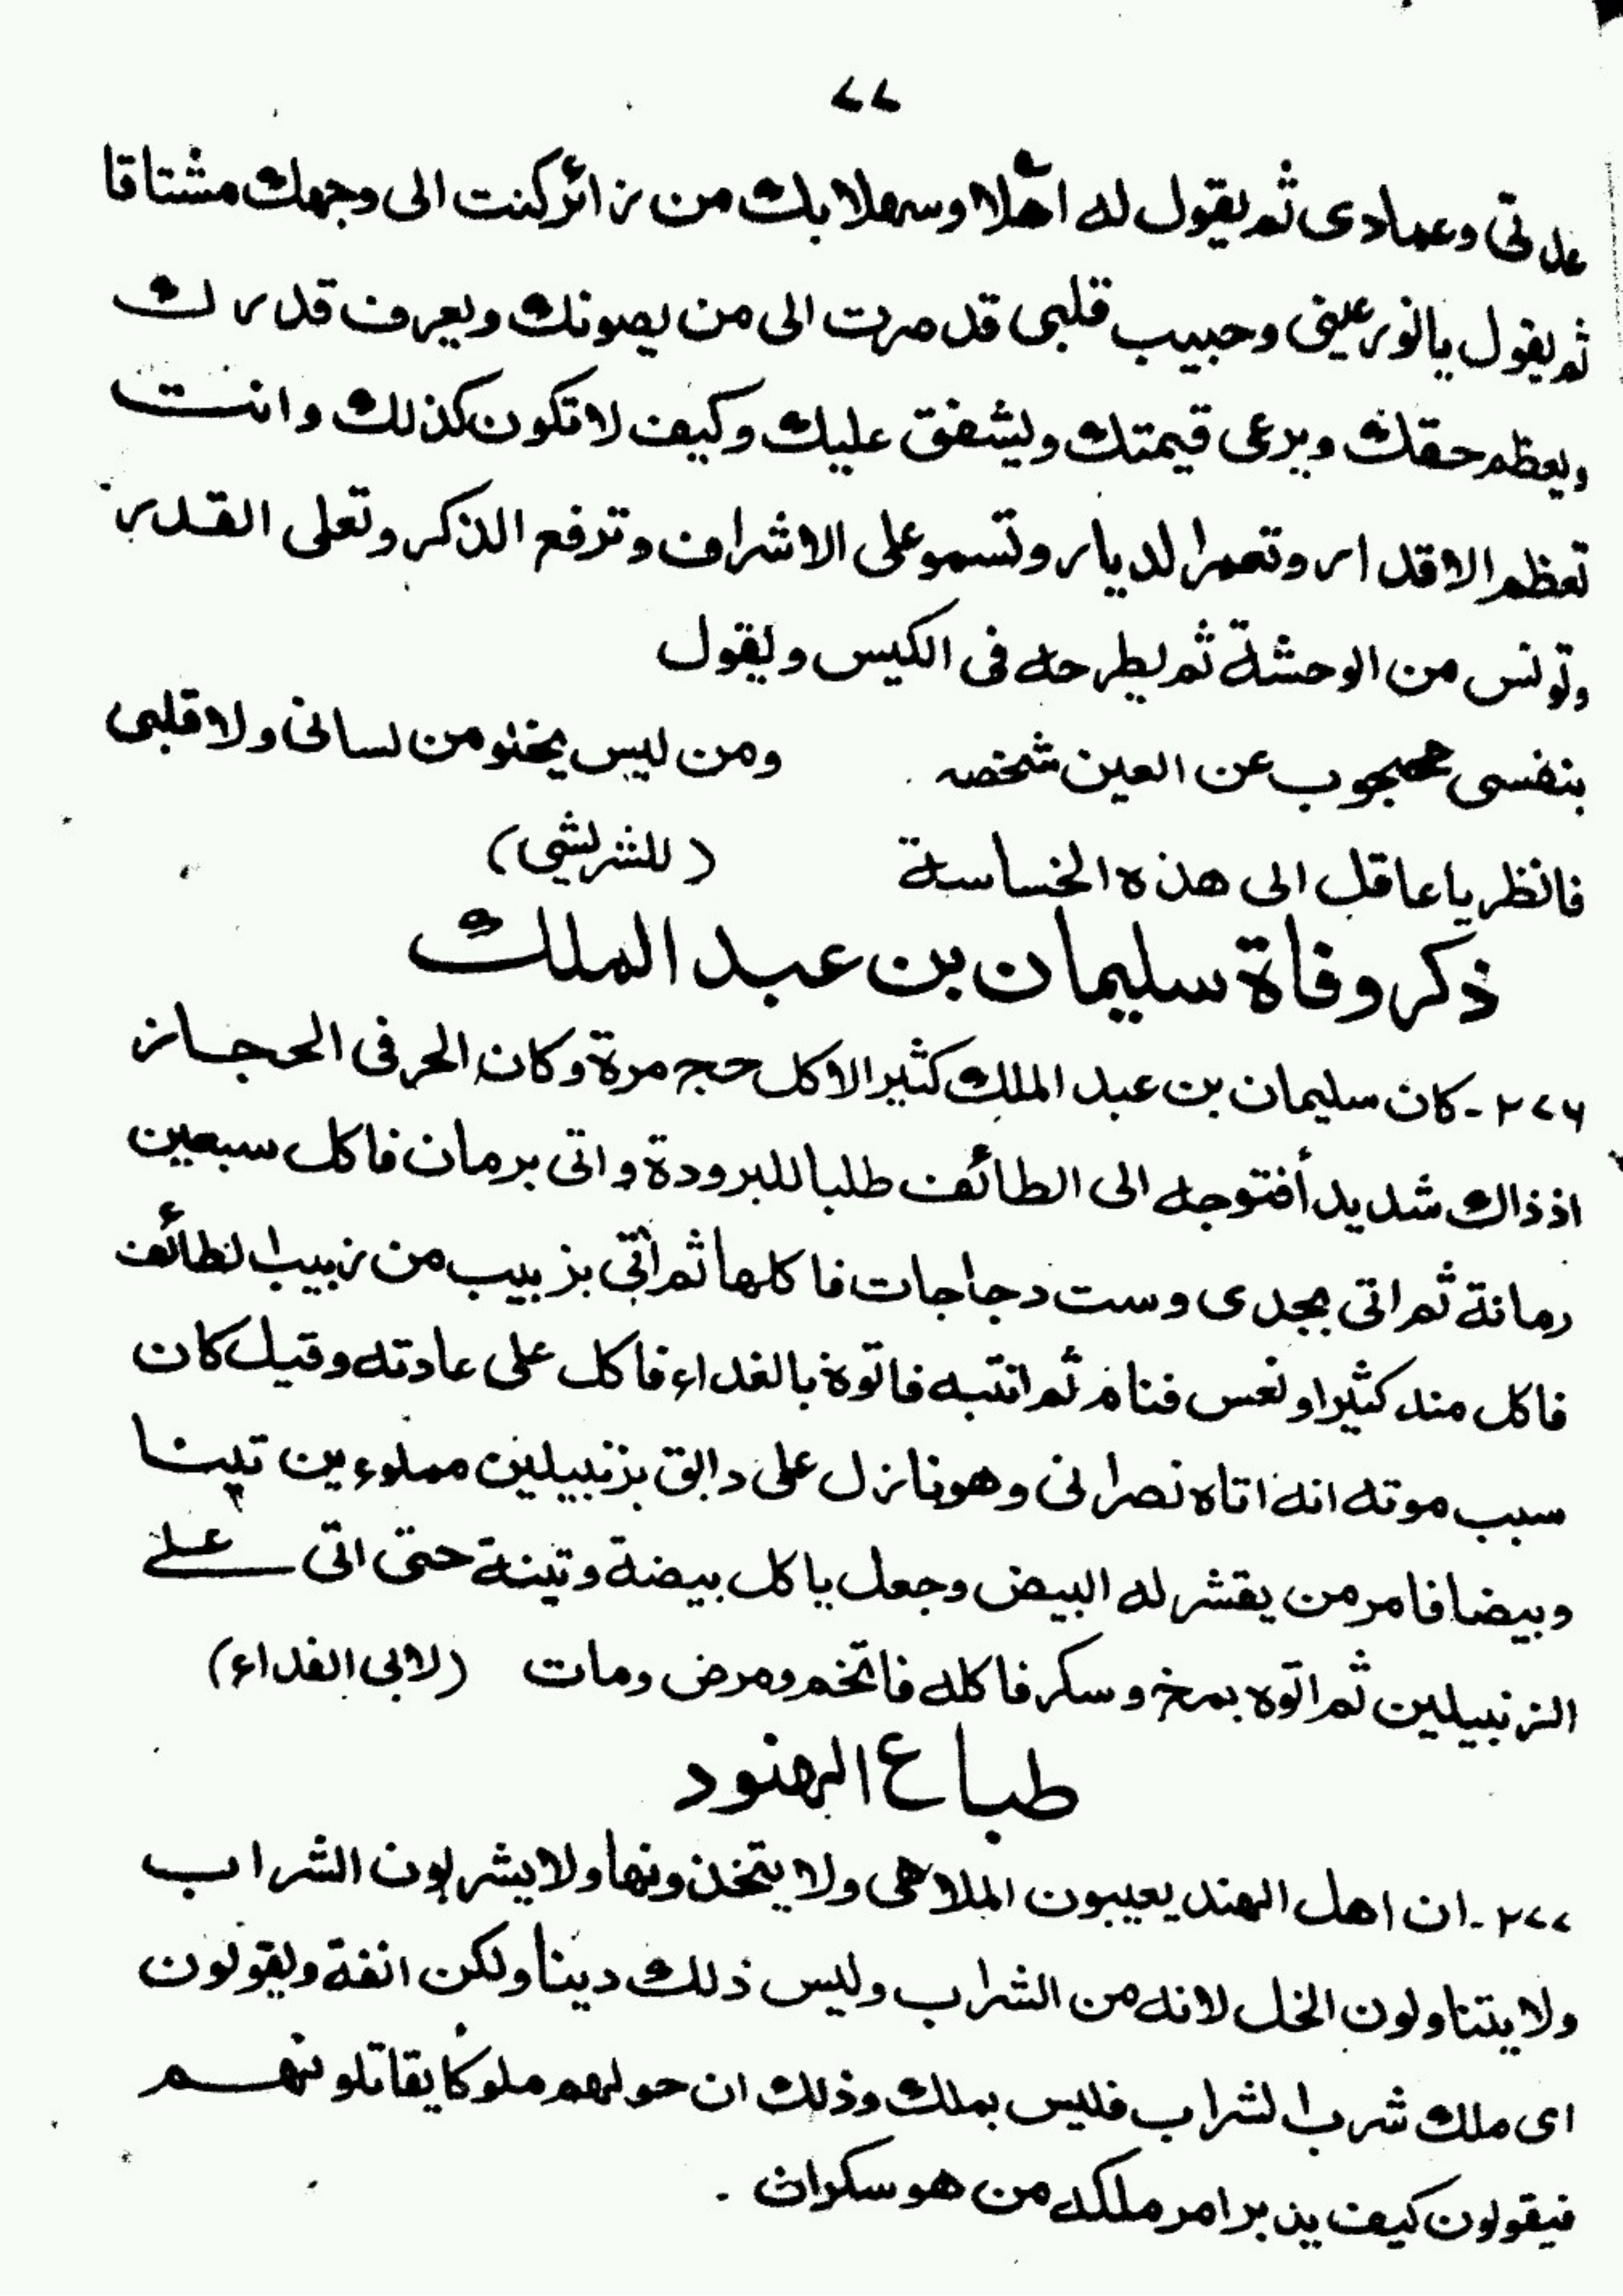 ٧٧
عدتى وعمادى ثم يقول له اهلا وسهلا بك من زائر كنت الى وجهك مشتاقا
ثم يقول يا نور عينى وحبيب قلبى قد صرت الى من يصونك ويعرف قدرك
ويعظم حقك ويرعى قيمتك ويشفق عليك وكيف لا تكون كذلك وانت
تعظم الاقدار وتعمر الديار وتسمو على الاشراف وترفع الذكر وتعلى القدر
وتونس من الوحشة ثم يطرحه فى الكيس ويقول
بنفسى محجوب عن العين شخصه ومن ليس يخلو من لسانى ولا قلبى
فانظر يا عاقل الى هذه الخساسة (للشريشي)
ذكر وفاة سليمان بن عبد الملك
٢٧٦ ـ كان سليمان بن عبد الملك كثير الاكل حج مرة وكان الحر فى الحجاز
اذ ذاك شديد أفتوجه الى الطائف طلبا للبرودة واتى برمان فاكل سبعين
رمانة ثم اتى بجدى وست دجاجات فاكلها ثم أتى بزبيب من زبيب الطائف
فاكل منه كثيرا ونعس فنام ثم انتبه فاتوه بالغداء فاكل على عادته وقيل كان
سبب موته انه اتاه نصرانى وهو نازل على دابق بزنبيلين مملوءين تينا
وبيضا فامر من يقشر له البيض وجعل ياكل بيضة وتينة حتى اتى على
الزنبيلين ثم اتوه بمخ وسكر فاكله فاتخم ومرض ومات (لابى الفداء)
طباع الهنود
٢٧٧ ـ ان اهل الهند يعيبون الملاهى ولا يتخذونها ولا يشربون الشراب
ولا يتناولون الخل لانه من الشراب وليس ذلك دينا ولكن انفة ويقولون
اى ملك شرب الشراب فليس بملك وذلك ان حولهم ملوكا يقاتلونهم
فيقولون كيف يدبر امر ملكه من هو سكران ـ